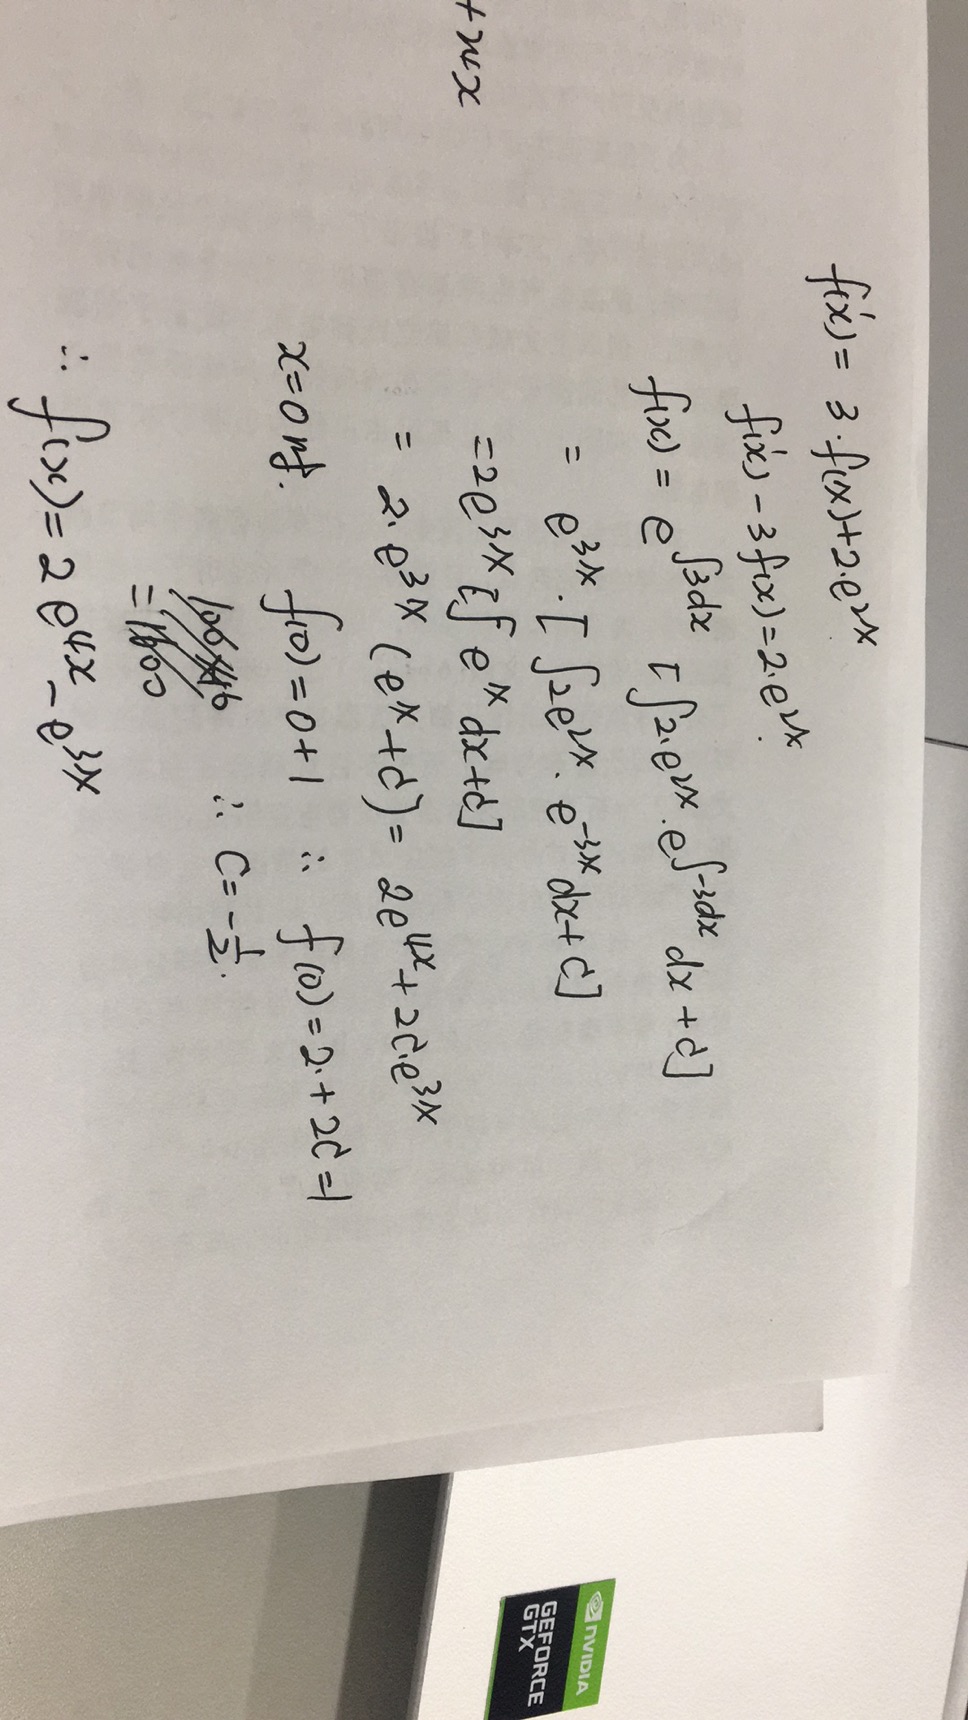 +x+x
f'(x) = 3·f(x)+2·e^{2x}
f'(x) - 3f(x) = 2·e^{2x}.
f(x) = e^{∫3dx} [∫2·e^{2x}·e^{∫-3dx} dx + C]
= e^{3x}·[∫2e^{2x}·e^{-3x} dx + C]
= 2e^{3x} [∫e^{x} dx + C]
= 2·e^{3x} (e^{x} + C) = 2e^{4x} + 2C·e^{3x}
x=0时. f(0) = 0+1 ∴ f(0) = 2·+2C=1
∴ C = -1/2.
∴ f(x) = 2e^{4x} - e^{3x}
NVIDIA
GEFORCE
GTX